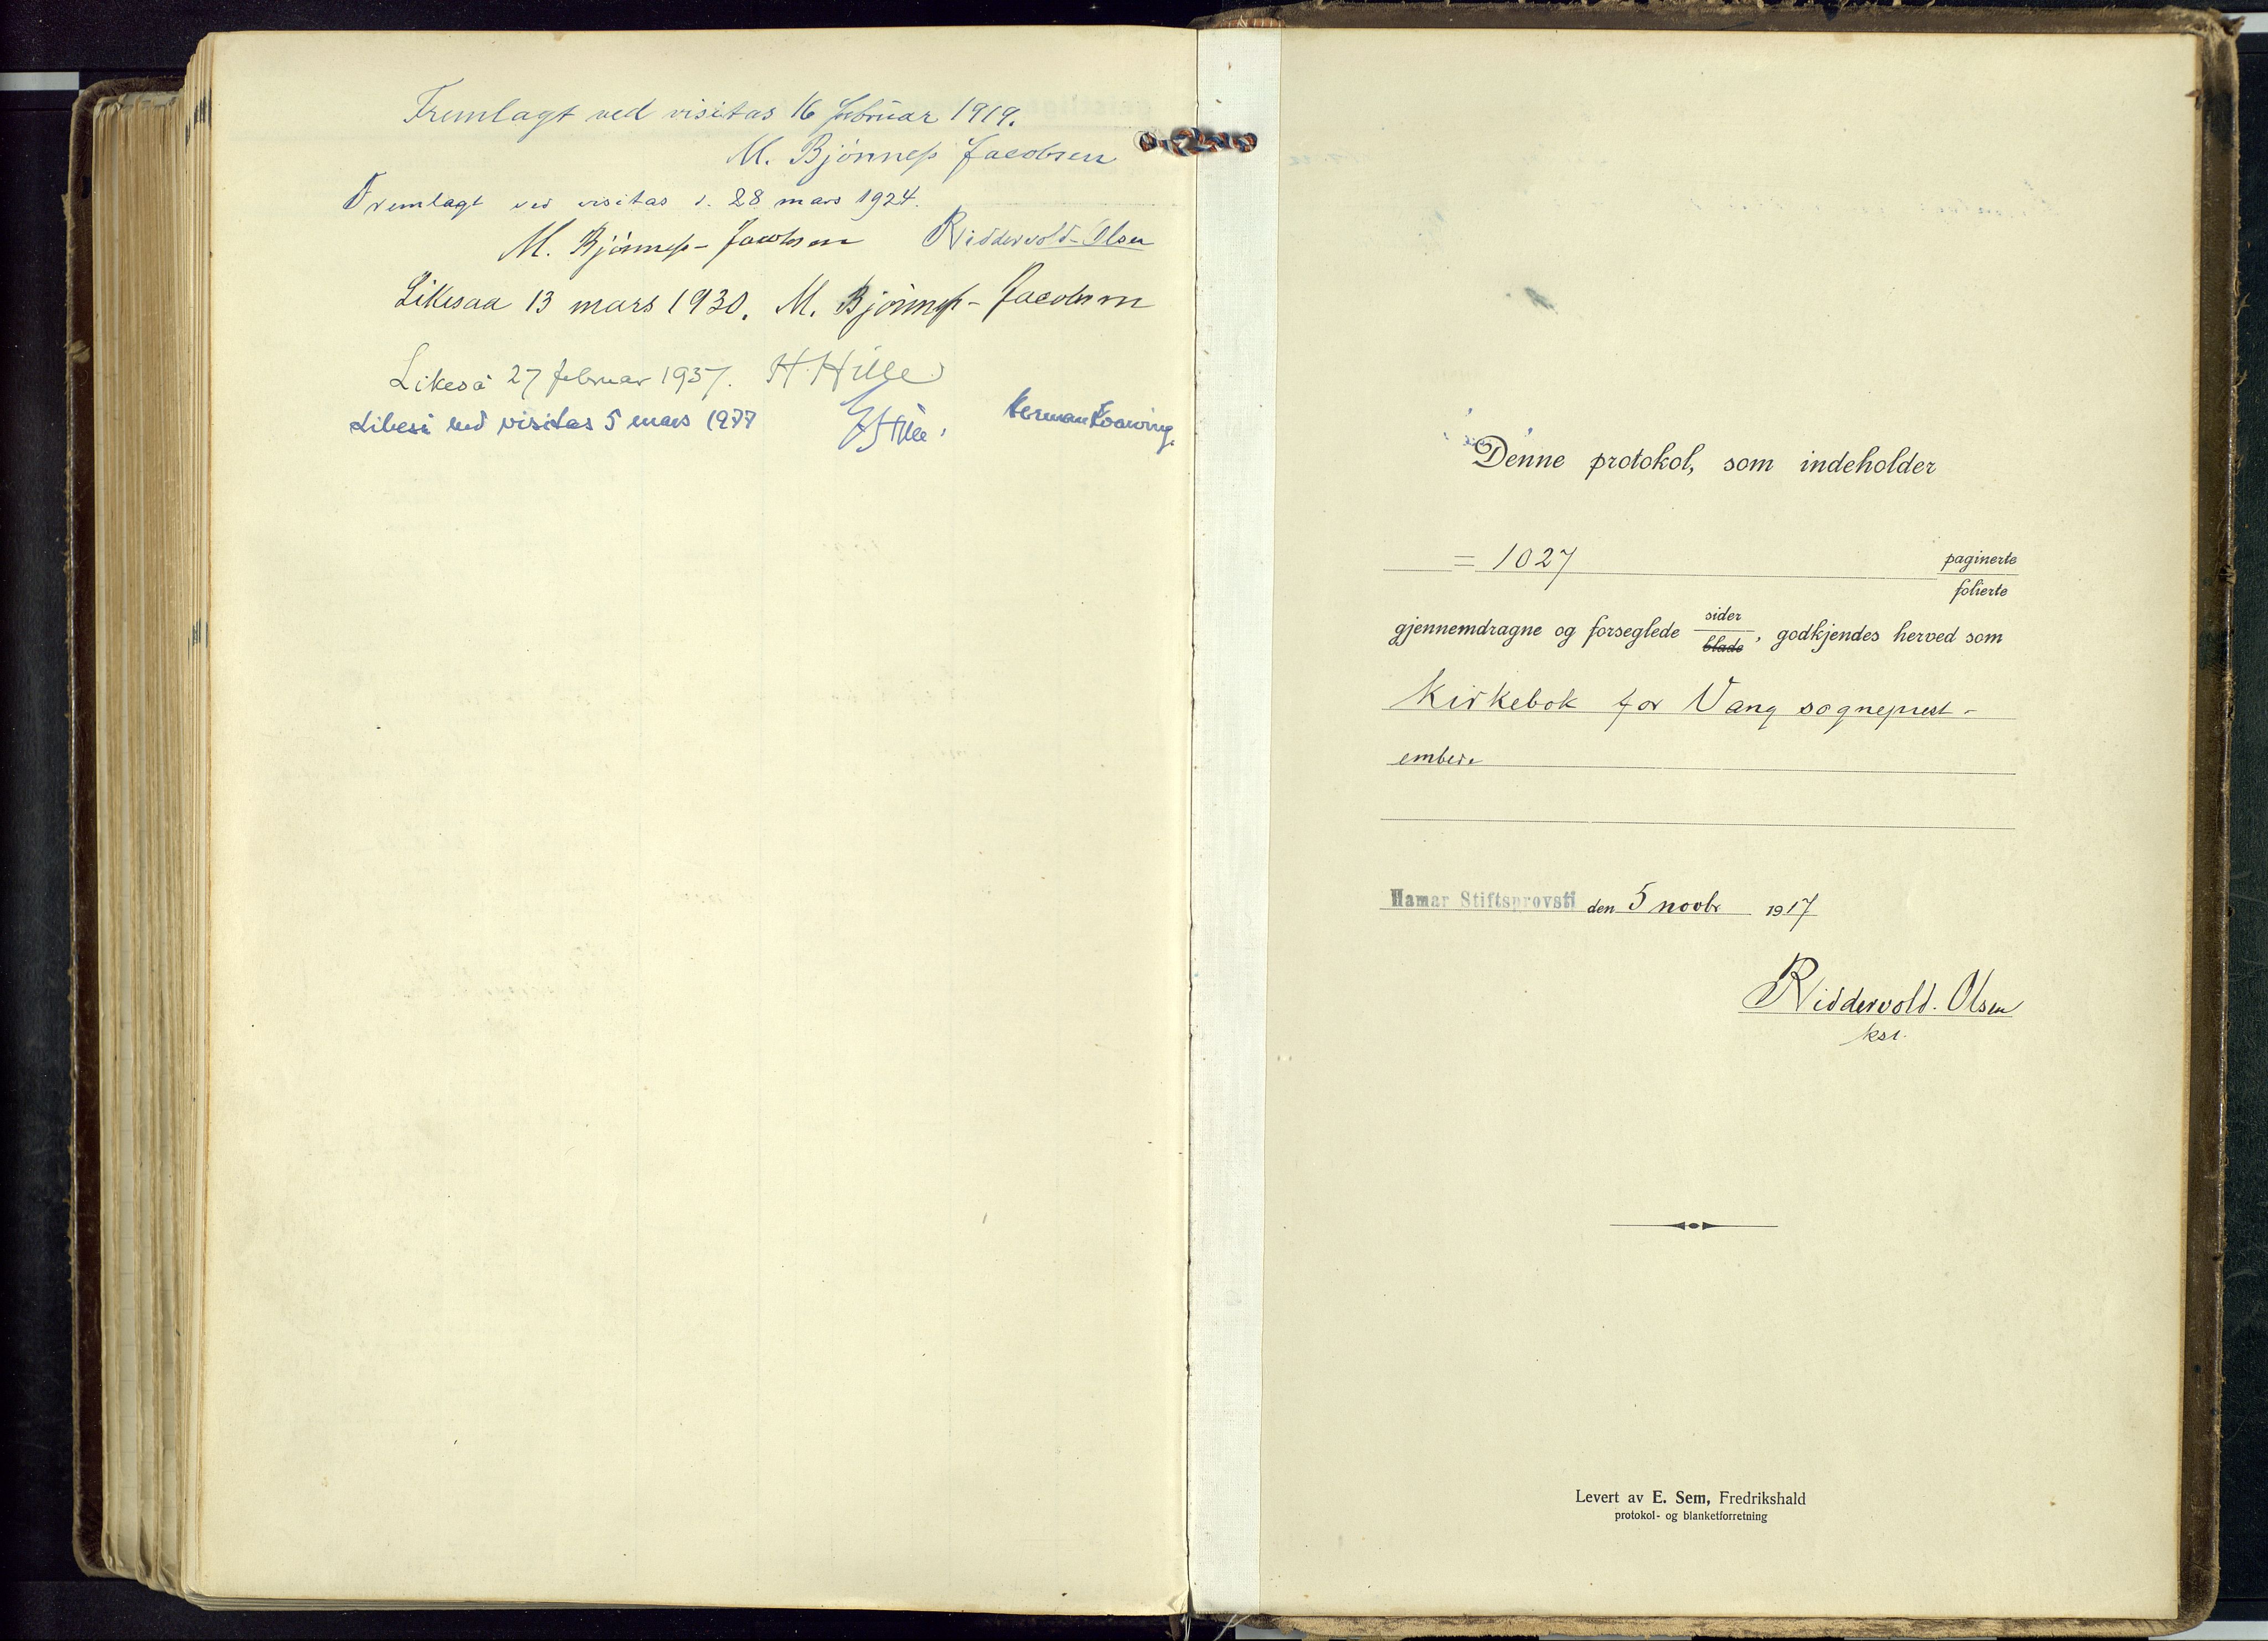 Fremlagt ved visitas 16 februar 1919.
M. Bjönness Jacobsen
Fremlagt ved visitas d. 28 mars 1924.
M. Bjönness-Jacobsen Riddervold-Olsen
Likesaa 13 mars 1930. M. Bjönness-Jacobsen
Likeså 27 februar 1937. H. Hille
Likeså ved visitas 5 mars H. Hille.
Denne protokol, som indeholder
= 1027 paginerte
folierte
gjennemdragne og forseglede sider
blade, godkjendes herved som
Kirkebok for Vang sogneprest-
embede
Hamar Stiftsprovsti den 5 novbr 1917
Riddervold-Olsen
kst.
Levert av E. Sem, Fredrikshald
protokol- og blanketforretning